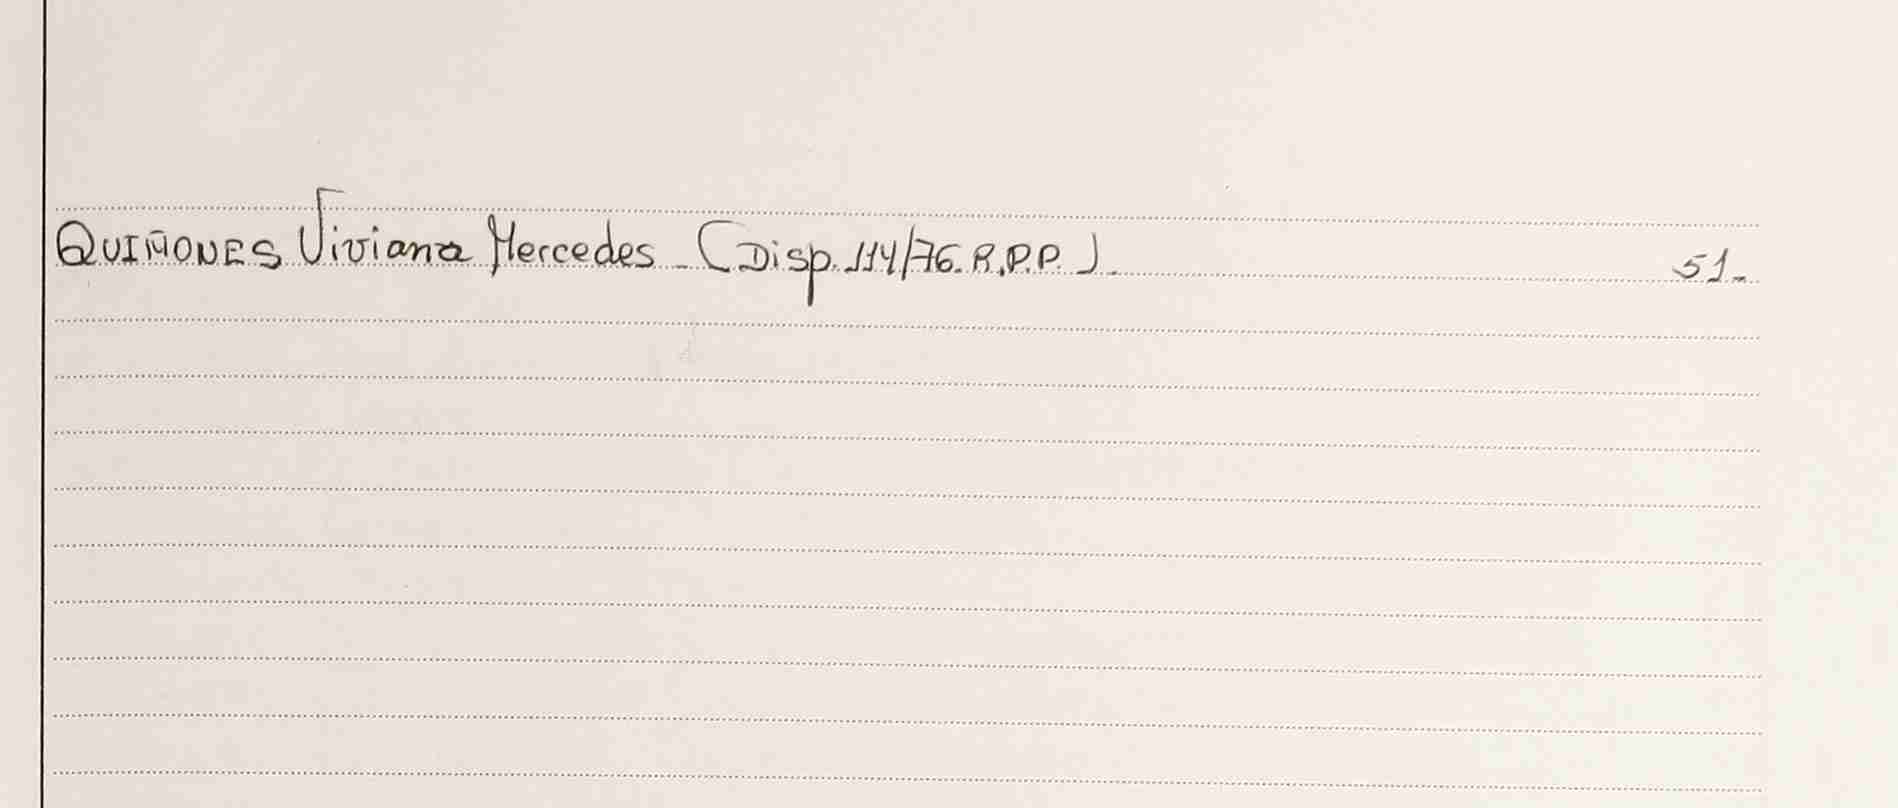 QUIÑONES Viviana Mercedes - (Disp. 114/76. R.P.P.). 51.-